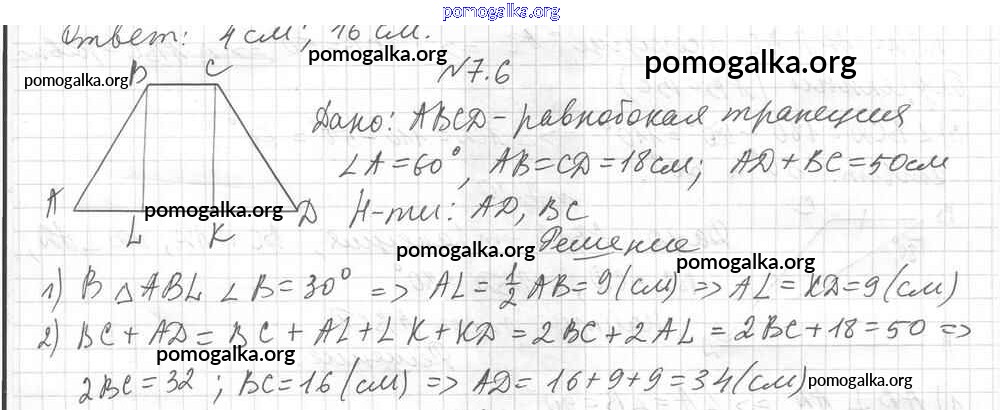 pomogalka.org
Ответ: 4 см; 16 см.
pomogalka.org
B C
pomogalka.org
№7.6
pomogalka.org
Дано: ABCD - равнобокая трапеция
∠A = 60°, AB = CD = 18 см; AD + BC = 50 см
A L K D
pomogalka.org
Н-ти: AD, BC
pomogalka.org
Решение
pomogalka.org
1) В △ABL ∠B = 30° => AL = 1/2 AB = 9 (см) => AL = KD = 9 (см)
2) BC + AD = BC + AL + LK + KD = 2BC + 2AL = 2BC + 18 = 50 =>
pomogalka.org
2BC = 32; BC = 16 (см) => AD = 16 + 9 + 9 = 34 (см)
pomogalka.org